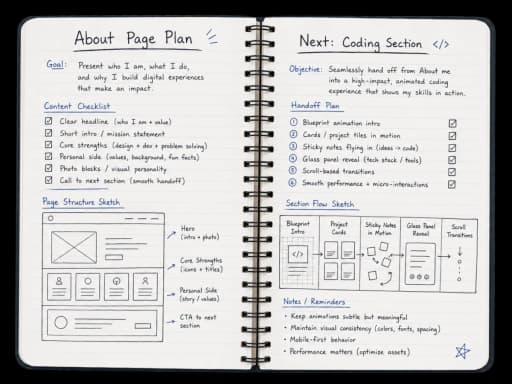 About Page Plan
Goal: Present who I am, what I do,
and why I build digital experiences
that make an impact.
Content Checklist
Clear headline (who I am + value)
Short intro / mission statement
Core strengths (design + dev + problem solving)
Personal side (values, background, fun facts)
Photo blocks / visual personality
Call to next section (smooth handoff)
Page Structure Sketch
Hero
(intro + photo)
Core Strengths
(icons + titles)
Personal Side
(story / values)
CTA to next
section
Next: Coding Section </>
Objective: Seamlessly hand off from About me
into a high-impact, animated coding
experience that shows my skills in action.
Handoff Plan
1 Blueprint animation intro
2 Cards / project tiles in motion
3 Sticky notes flying in (ideas → code)
4 Glass panel reveal (tech stack / tools)
5 Scroll-based transitions
6 Smooth performance + micro-interactions
Section Flow Sketch
Blueprint
Intro
</>
Project
Cards
Sticky Notes
in Motion
Glass Panel
Reveal
Scroll
Transitions
Notes / Reminders
• Keep animations subtle but meaningful
• Maintain visual consistency (colors, fonts, spacing)
• Mobile-first behavior
• Performance matters (optimise assets)